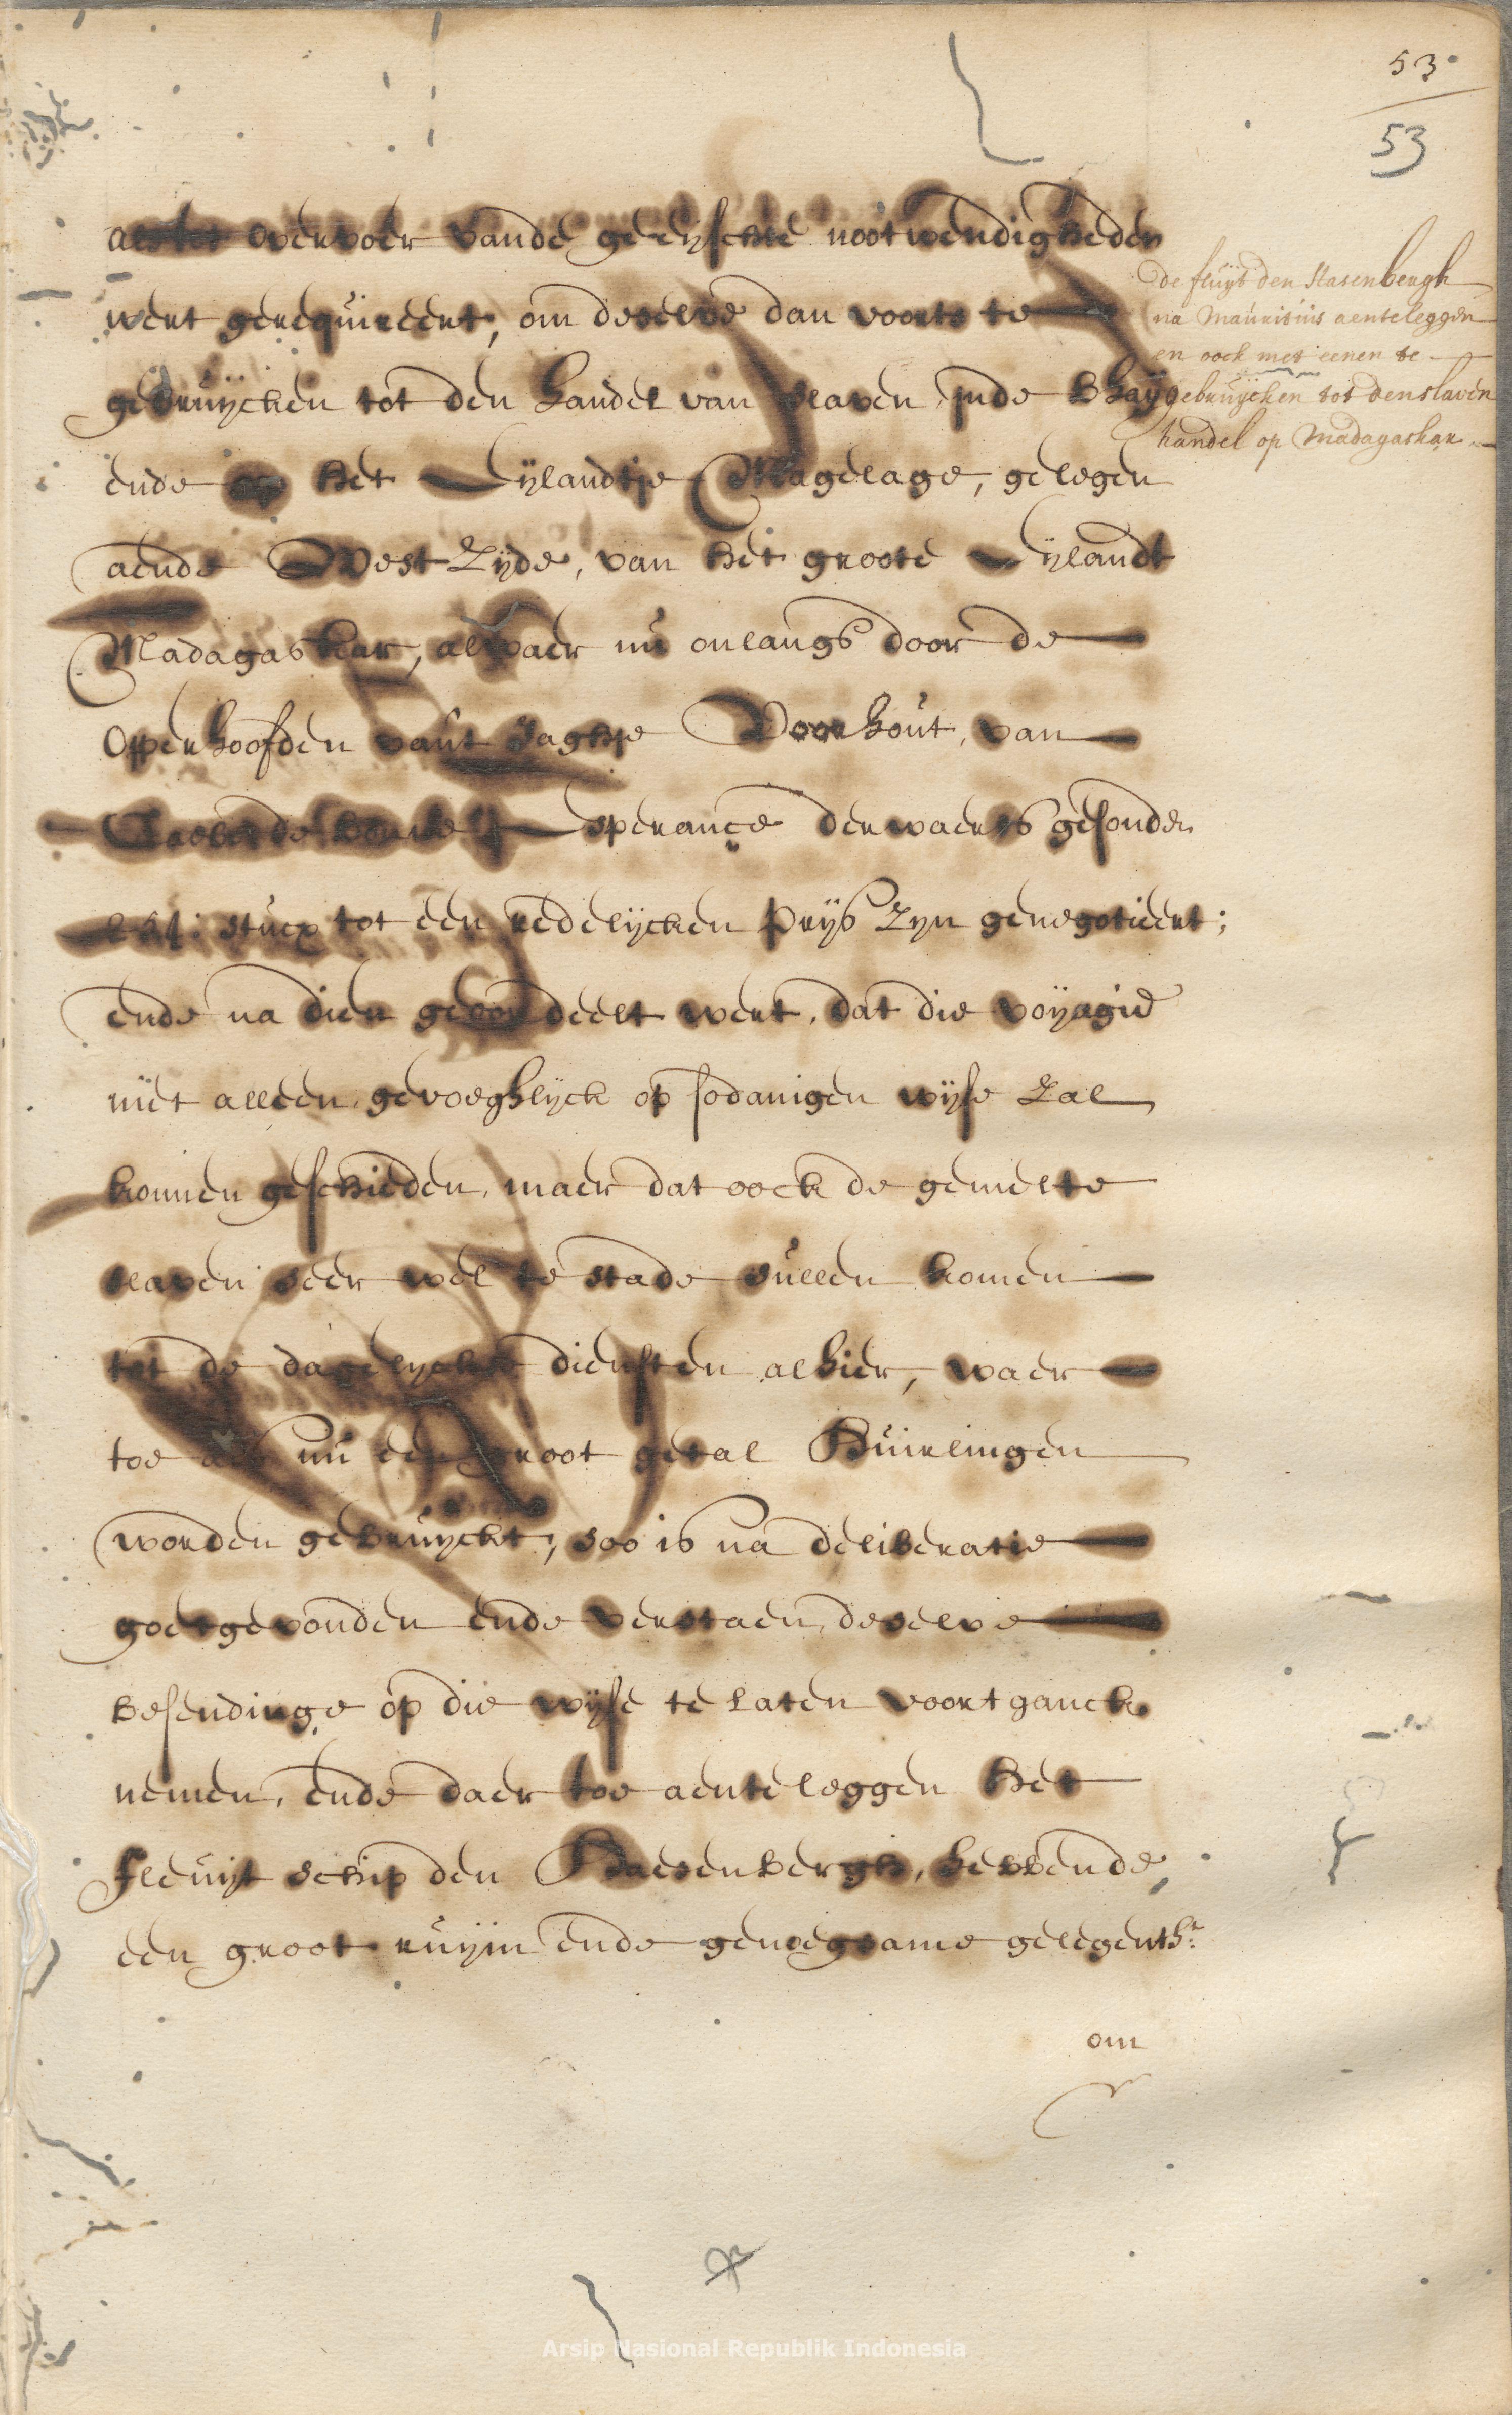 53
53
als tot overvoer vande geeyschte nootwendigheden
wert gerequireert, om deselve dan voorts te
gebruijcken tot den handel van slaven inde Bhaij
ende op het Eijlandtje Magelage, gelegen
aende West Zijde, van het groote Eijlandt
Madagaskar, alwaer nu onlangs door de
Opperhoofden van't Jaghje Voorhout, van
Cabo de bonne Esperance derwaerts gesonden
stucx tot een redelijcken prijs zyn genegotieert;
ende na dien geoordeelt wert, dat die voijagie
niet alleen gevoeghlijck op sodanigen wijse zal
konnen geschieden, maer dat oock de gemelte
slaven seer wel te stade sullen komen
tot de dagelijckse diensten alhier, waer
toe als nu een groot getal Huirlingen
worden gebruijckt, soo is na deliberatie
goetgevonden ende verstaen, deselve
besendinge op die wijse te laten voortganck
nemen, ende daer toe aenteleggen het
fleuijt schip den Haesenbergh, hebbende
een groot ruijm ende genoegsame gelegenth:
om
de fluijt den Hasenbergh
na Mauritius aenteleggen
en oock met eenen te
gebruijcken tot den slaven
handel op Madagaskar
Arsip Nasional Republik Indonesia